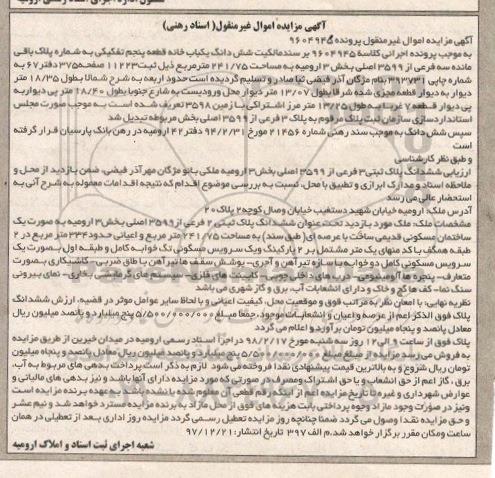 آگهی مزایده اموال غیرمنقول( اسناد رهنی)
آگهی مزایده اموال غیر منقول پرونده ۹۶۰۴۹۴۵
به موجب پرونده اجرایی کلاسه ۹۶۰۴۹۴۵ بر سند مالکیت شش دانگ یکباب خانه قطعه پنجم تفکیکی به شماره پلاک باقی
مانده سه فرعی از ۳۵۹۹ اصلی بخش ۳ ارومیه به مساحت ۲۴۱/۷۵ مترمربع ذیل ثبت ۱۱۲۲۳ صفحه ۳۷۵ دفتر ۶۷ به
شماره چاپی ۳۹۳۷۳۱ بنام مژگان آذر فیضی ثبت و صادر و تسلیم گردیده است حدود اربعه به شرح شمالا بطول ۱۸/۳۵ متر
دیوار به دیوار قطعه مجزی شده شرقا بطول ۱۳/۰۷ متر دیوار محل ورودیست به شارع جنوبا بطول ۱۸/۴۰ متر پی دیوار به
پی دیوار قطعه ۷ غربا به طول ۱۳/۲۵ متر مرز اشتراکی با زمین ۳۵۹۸ تعریف شده است به موجب صورت مجلس
استانداردسازی سازمان ثبت پلاک مرقوم به پلاک ۳ فرعی از ۳۵۹۹ اصلی بخش مربوطه تبدیل شد
سپس شش دانگ به موجب سند رهنی شماره ۲۱۴۵۶ مورخ ۹۴/۲/۳۱ دفتر ۴۲ ارومیه در رهن بانک پارسیان قرار گرفته
است
و طبق نظر کارشناسی
ارزیابی ششدانگ پلاک ثبتی ۳ فرعی از ۳۵۹۹ اصلی بخش ۳ ارومیه ملکی بانو مژگان مهر آذر فیضی، ضمن بازدید از محل و
ملاحظه اسناد و مدارک ابرازی و تطبیق با محل، نسبت به بررسی موضوع اقدام که نتیجه اقدامات معموله به شرح آتی به
استحضار عالی می رسد
آدرس ملک: ارومیه خیابان شهید دستغیب خیابان وصال کوچه ۲ پلاک ۲۰
مشخصات ملک: ملک مورد بازدید تحت عنوان ششدانگ پلاک ثبتی ۲ فرعی از ۳۵۹۹ اصلی بخش ۳ ارومیه به صورت یک
ساختمان مسکونی قدیمی ساخت با عرصه ای( طبق سند) به مساحت ۲۴۱/۷۵ متر مربع و اعیانی حدود ۳۳۴ متر مربع در ۲
طبقه همکف با کد منهای یک متر مشتمل بر ۲ پارکینگ و یک سرویس مسکونی تک خوابه کامل و طبقه اول بصورت یک
سرویس مسکونی کامل دو خوابه با سازه تیرآهن و آجری- پوشش سقف ها تیرآهن با طاق ضربی- کاشیکاری بصورت
متعارف- پنجره ها آلومینیومی- درب های داخلی چوبی- کابینت های فلزی- سیستم های گرمایشی بخاری- نمای بیرونی
سنگ نما- کف ها گچ و خاک و دارای انشعابات آب، برق و گاز شهری می باشد
نظریه نهایی: با امعان نظر به مراتب فوق و موقعیت محل، کیفیت اعیانی و با لحاظ سایر عوامل موثر در قضیه، ارزش ششدانگ
پلاک فوق الذکر اعم از عرصه و اعیان و انشعابات موجود، جمعا مبلغ ۵/۵۰۰/۰۰۰/۰۰۰ پنج میلیارد و پانصد میلیون ریال
معادل پانصد و پنجاه میلیون تومان برآورد و اعلام می گردد
پلاک فوق از ساعت ۹ الی ۱۲ روز سه شنبه مورخ ۹۸/۲/۱۷ در اجرا اسناد رسمی ارومیه در میدان خیرین از طریق مزایده
به فروش می رسد مزایده از مبلغ مبلغ ۵/۵۰۰/۰۰۰/۰۰۰ پنج میلیارد و پانصد میلیون ریال معادل پانصد و پنجاه میلیون
تومان ریال شروع و به بالاترین قیمت پیشنهادی نقدا فروخته می شود لازم به ذکر است پرداخت بدهی های مربوط به آب
برق، گاز اعم از حق انشعاب و یا حق اشتراک و مصرف در صورتی که مورد مزایده دارای آنها باشد و نیز بدهی های مالیاتی و
عوارض شهرداری و غیره تا تاریخ مزایده اعم از اینکه رقم قطعی آن معلوم شده یا نشده باشد به عهده برنده مزایده است
و نیز در صورت وجود مازاد وجوه پرداختی بابت هزینه های فوق از محل مازاد به برنده مزایده مسترد خواهد شد و نیم عشر
و حق مزایده نقدا وصول می گردد ضمنا چنانچه روز مزایده تعطیل رسمی گردد مزایده روز اداری بعد از تعطیلی در همان
ساعت و مکان مقرر برگزار خواهد شد. م الف ۳۹۷ تاریخ انتشار: ۹۷/۱۲/۲۱
شعبه اجرای ثبت اسناد و املاک ارومیه